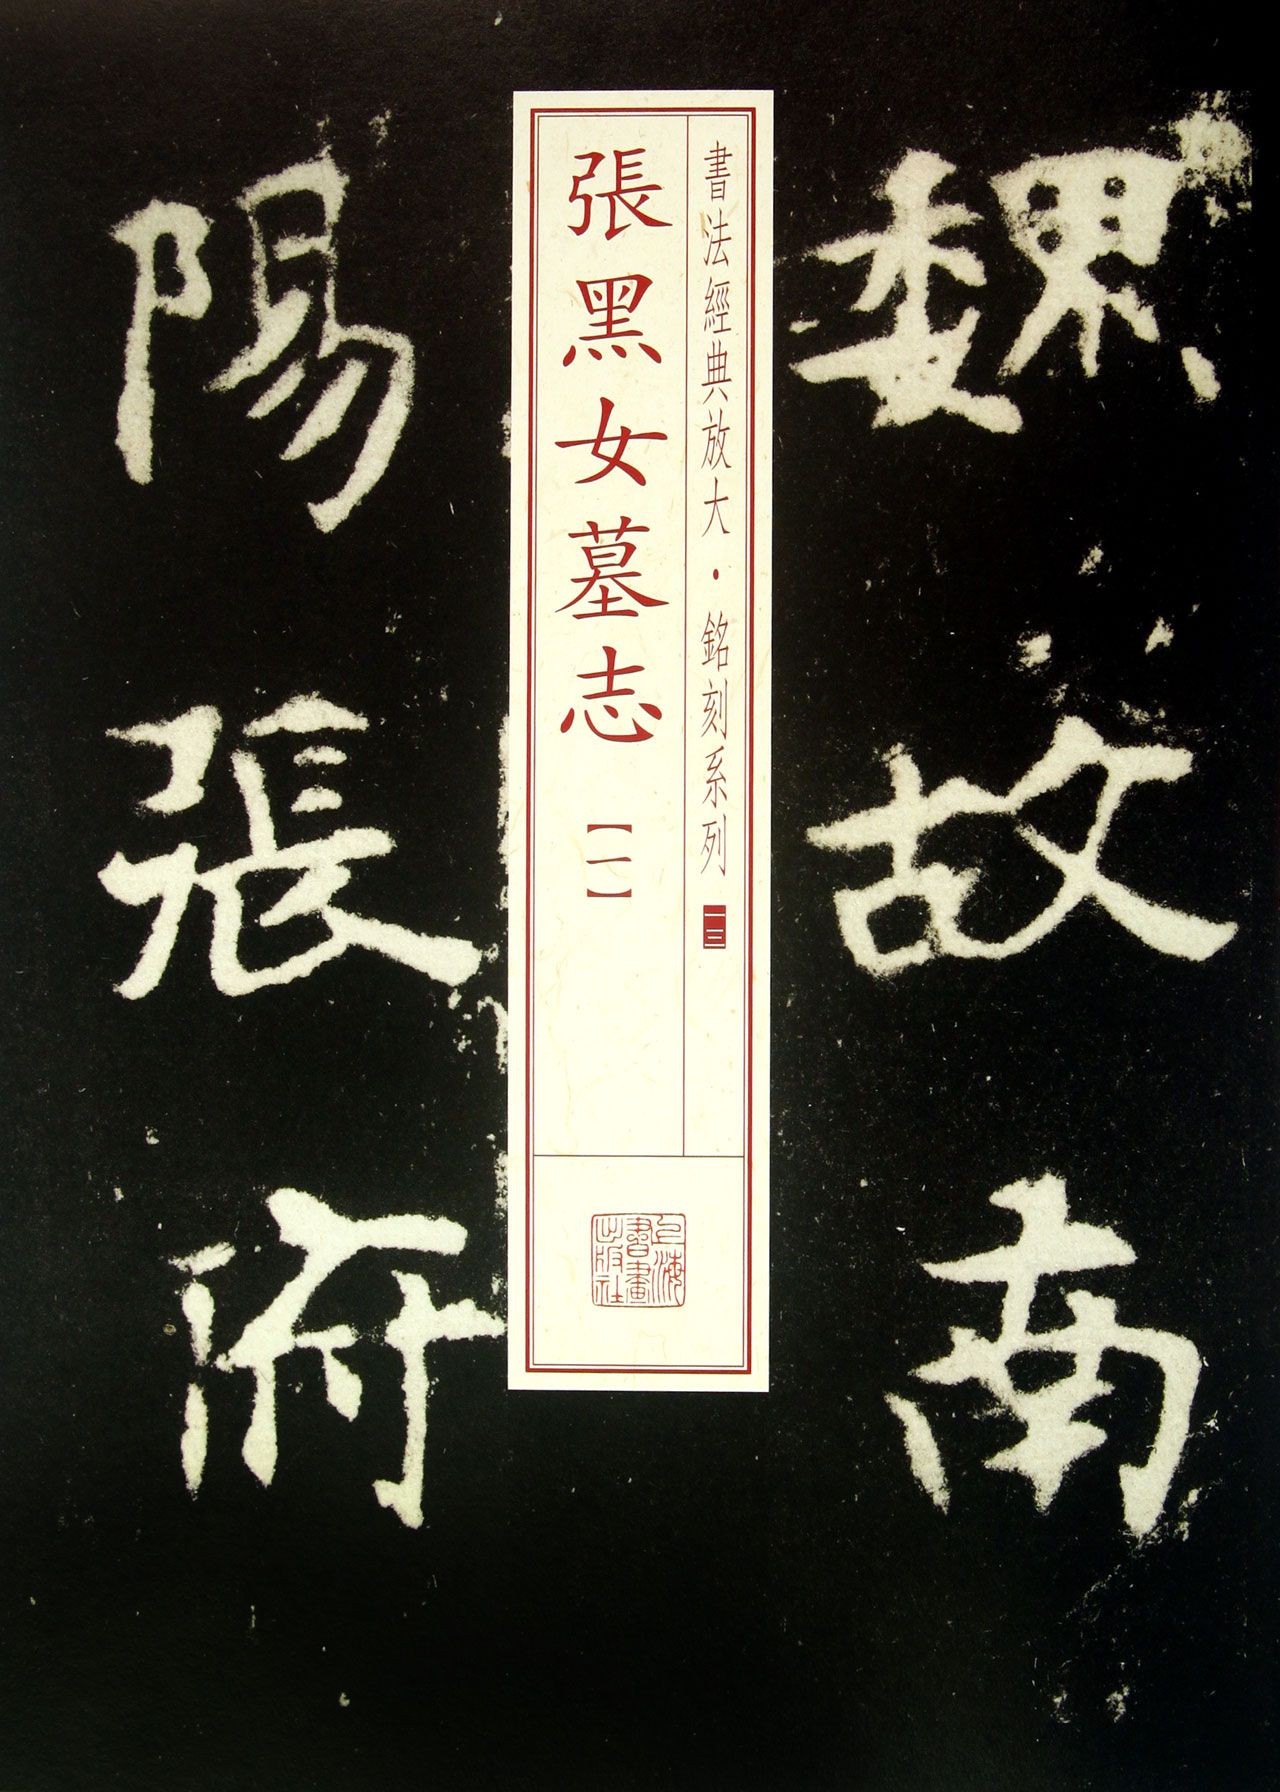 魏故南
書法經典放大·銘刻系列 一三
張黑女墓志【一】
上海書畫出版社
陽張府